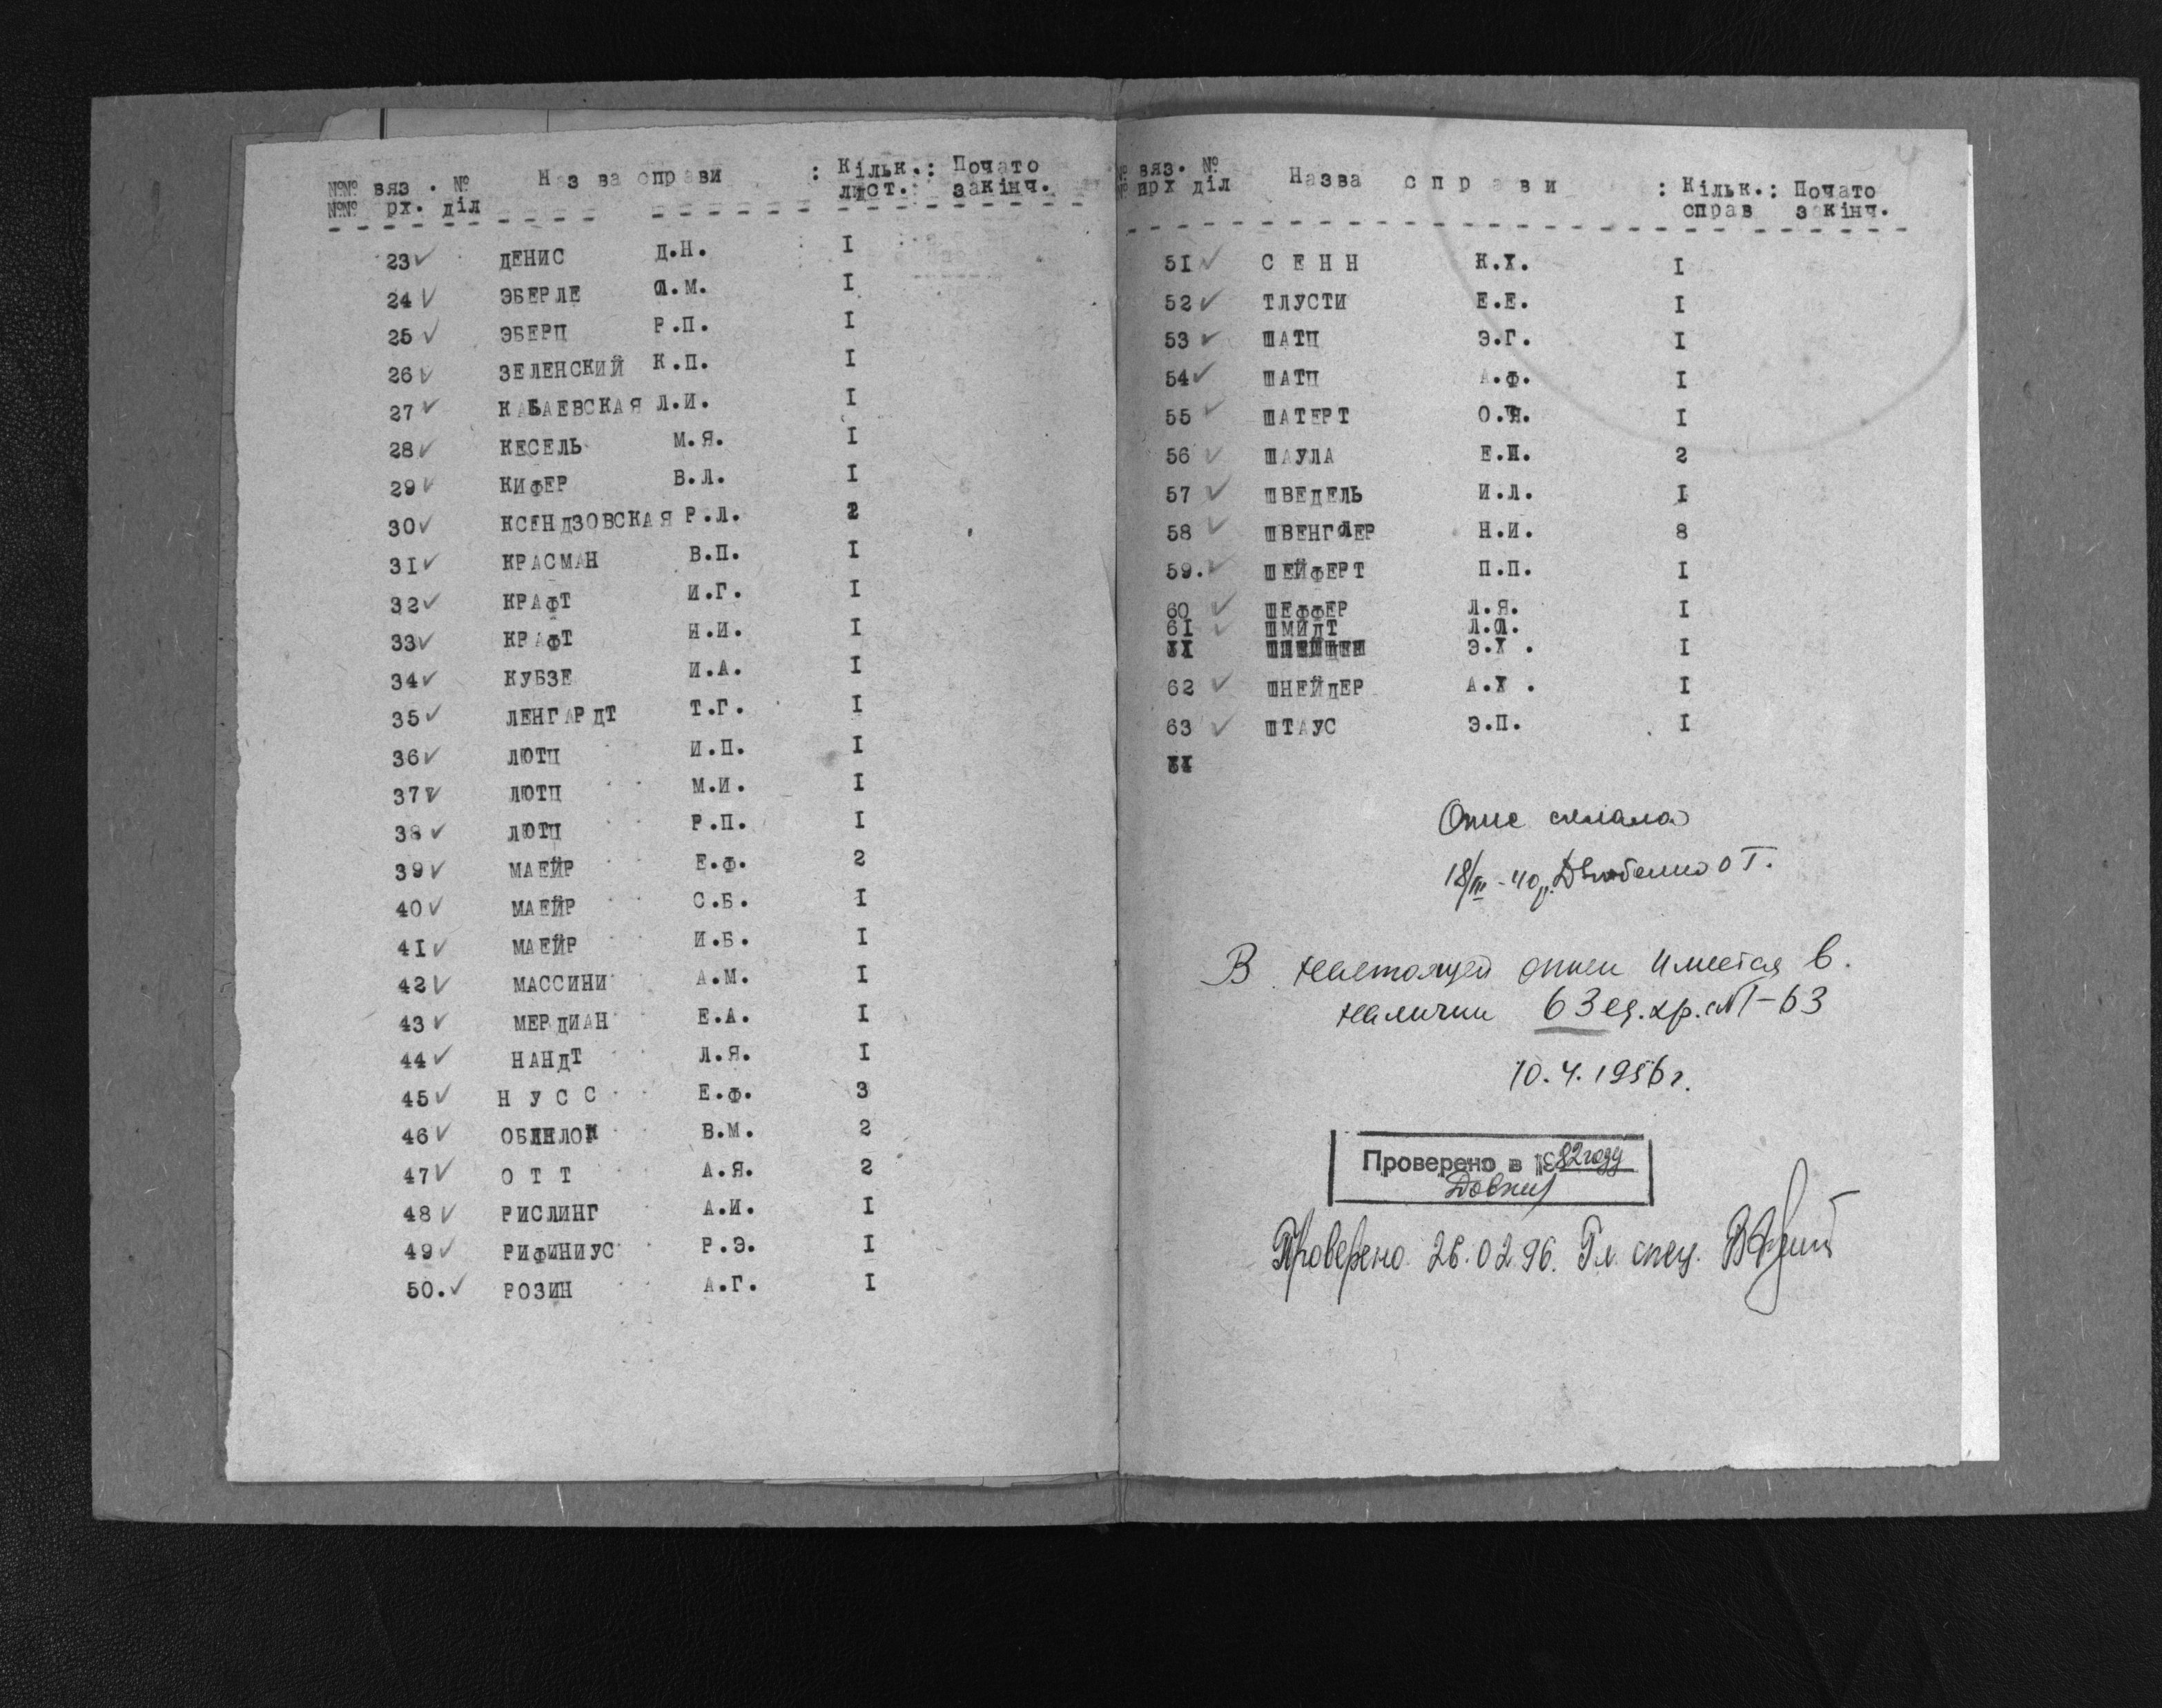 №№ вяз. № Назва справи : Кільк.: Почато
№№ рх. діл лист. закінч.
23 ДЕНИС Д.Н. I
24 ЭБЕРЛЕ Л.М. I
25 ЭБЕРЦ Р.П. I
26 ЗЕЛЕНСКИЙ К.П. I
27 КАБАЕВСКАЯ Л.И. I
28 КЕСЕЛЬ М.Я. I
29 КИФЕР В.Л. I
30 КСЕНДЗОВСКАЯ Р.Л. 2
31 КРАСМАН В.П. I
32 КРАФТ И.Г. I
33 КРАФТ Н.И. I
34 КУБЗЕ И.А. I
35 ЛЕНГАРДТ Т.Г. I
36 ЛЮТЦ И.П. I
37 ЛЮТЦ М.И. I
38 ЛЮТЦ Р.П. I
39 МАЕЙР Е.Ф. 2
40 МАЕЙР С.Б. I
41 МАЕЙР И.Б. I
42 МАССИНИ А.М. I
43 МЕРДИАН Е.А. I
44 НАНДТ Л.Я. I
45 Н У С С Е.Ф. 3
46 В.М. 2
47 О Т Т А.Я. 2
48 РИСЛИНГ А.И. I
49 РИФИНИУС Р.Э. I
50. РОЗИН А.Г. I
№ вяз. № Назва справи : Кільк.: Почато
№ рх діл справ закінч.
51 С Е Н Н К.Х. I
52 ТЛУСТИ Е.Е. I
53 ШАТЦ Э.Г. I
54 ШАТЦ А.Ф. I
55 ШАТЕРТ О.Я. I
56 ШАУЛА Е.И. 2
57 ШВЕДЕЛЬ И.Л. I
58 ШВЕНГЛЕР Н.И. 8
59. ШЕЙФЕРТ П.П. I
60 ШЕФФЕР Л.Я. I
61 ШМИДТ Л.Л.
Э.Х. I
62 ШНЕЙДЕР А.Х. I
63 ШТАУС Э.П. I
Опис склала
18/III-40
В настоящей описи имеется в
наличии 63 ед.хр. №1-63
10.4.1956г.
Проверено в 1982 году
Проверено 26.02.96. Гл. спец.